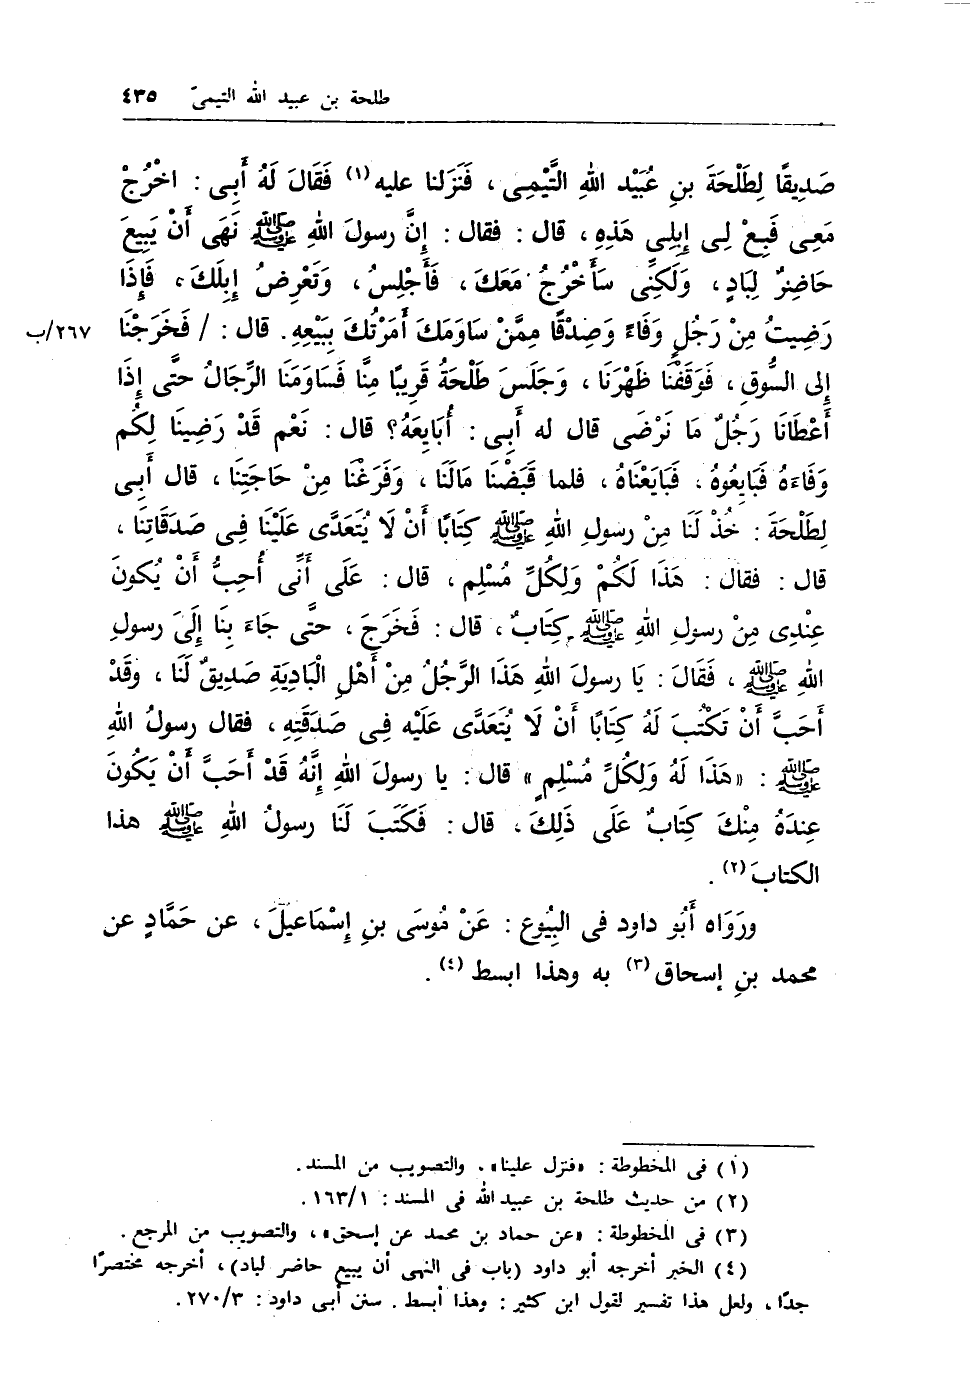 طلحة بن عبيد الله التيمىّ ٤٣٥
صَدِيقًا لِطَلْحَةَ بنِ عُبَيْد اللهِ التَّيْمِى ، فَنَزَلنا عليه (١) فَقَالَ لَهُ أَبِى : اخْرُجْ
مَعِى فَبِعْ لِى إِبِلِى هَذِهِ ، قال : فقال : إِنَّ رسولَ اللهِ ﷺ نَهَى أَنْ يَبِيعَ
حَاضِرٌ لِبَادٍ ، وَلَكِنِّى سَأَخْرُجُ مَعَكَ ، فَأَجْلِسُ ، وَتَعْرِضُ إِبِلَكَ ، فَإِذَا
رَضِيتُ مِنْ رَجُلٍ وَفَاءً وَصِدْقًا مِمَّنْ سَاوَمَكَ أَمَرْتُكَ بِبَيْعِهِ. قال : / فَخَرَجْنَا ٢٦٧/ب
إِلى السُّوقِ ، فَوَقَفْنَا ظَهْرَنَا ، وَجَلَسَ طَلْحَةُ قَرِيبًا مِنَّا فَسَاوَمَنَا الرِّجَالُ حتَّى إِذَا
أَعْطَانَا رَجُلٌ مَا نَرْضَى قال له أَبِى : أُبَايِعَهُ؟ قال : نَعْم قَدْ رَضِينَا لِكُم
وَفَاءَهُ فَبَايِعُوهُ ، فَبَايَعْنَاهُ ، فلما قَبَضْنَا مَالَنَا ، وَفَرَغْنَا مِنْ حَاجَتِنَا ، قال أَبِى
لِطَلْحَةَ : خُذْ لَنَا مِنْ رسولِ اللهِ ﷺ كِتَابًا أَنْ لَا يُتَعَدَّى عَلَيْنَا فِى صَدَقَاتِنَا ،
قال : فقال : هَذَا لَكُمْ وَلِكُلِّ مُسْلِمٍ ، قال : عَلَى أَنِّى أُحِبُّ أَنْ يُكونَ
عِنْدِى مِنْ رسولِ اللهِ ﷺ كِتَابٌ ، قال : فَخَرَجَ ، حتَّى جَاءَ بِنَا إِلَى رسولِ
اللهِ ﷺ ، فَقَالَ : يَا رسولَ اللهِ هَذَا الرَّجُلُ مِنْ أَهْلِ الْبَادِيَةِ صَدِيقٌ لَنَا ، وقَدْ
أَحَبَّ أَنْ تَكْتُبَ لَهُ كِتَابًا أَنْ لَا يُتَعَدَّى عَلَيْه فِى صَدَقَتِهِ ، فقال رسولُ اللهِ
ﷺ : «هَذَا لَهُ وَلِكُلِّ مُسْلِمٍ» قال : يا رسولَ اللهِ إِنَّهُ قَدْ أَحَبَّ أَنْ يَكُونَ
عِندَهُ مِنْكَ كِتَابٌ عَلَى ذَلِكَ ، قال : فَكَتَبَ لَنَا رسولُ اللهِ ﷺ هذا
الكتابَ (٢) .
ورَوَاه أَبُو داود فى البُيُوع : عَنْ مُوسَى بنِ إِسْمَاعِيلَ ، عن حَمَّادٍ عن
محمد بنِ إسحاق (٣) به وهذا ابسط (٤) .
(١) فى المخطوطة : «فنزل علينا» . والتصويب من المسند.
(٢) من حديث طلحة بن عبيد الله فى المسند : ١٦٣/١ .
(٣) فى المخطوطة : «عن حماد بن محمد عن إسحق» ، والتصويب من المرجع .
(٤) الخبر أخرجه أبو داود (باب فى النهى أن يبيع حاضر لباد) ، أخرجه مختصرًا
جدًا ، ولعل هذا تفسير لقول ابن كثير : وهذا أبسط . سنن أبى داود : ٢٧٠/٣ .